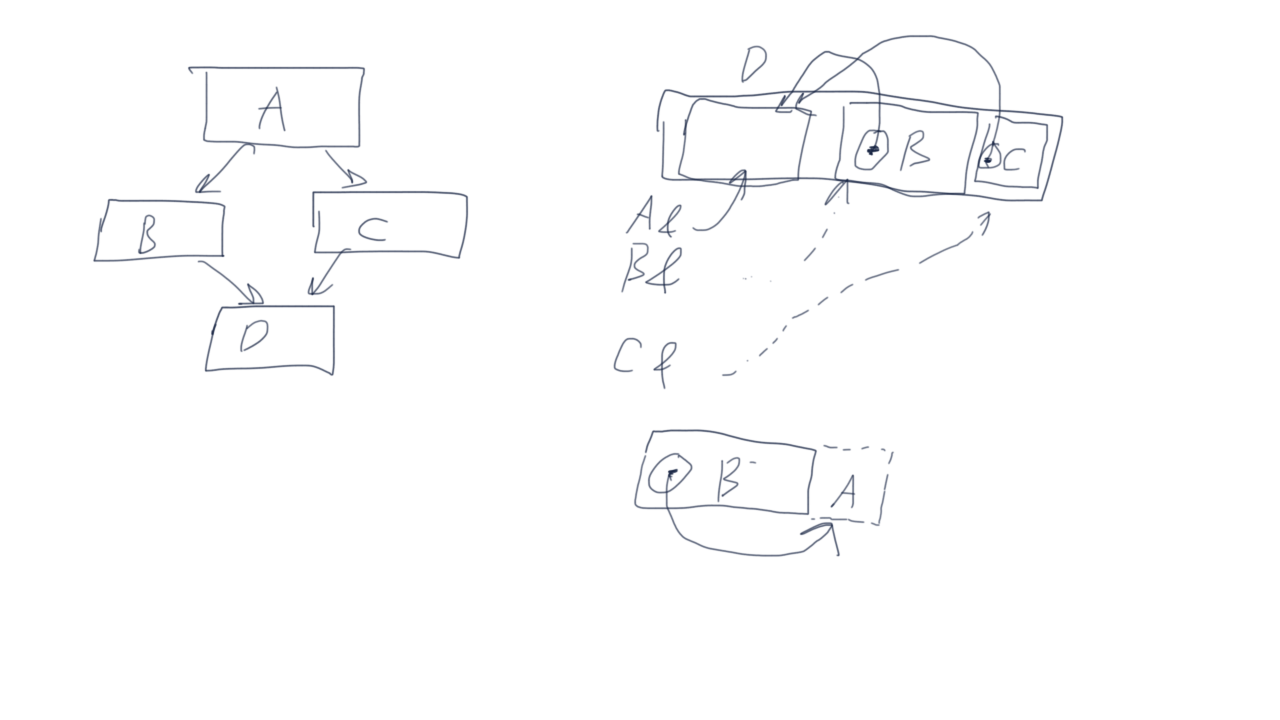 A
B
C
D
D
B
C
A&
B&
C&
B
A